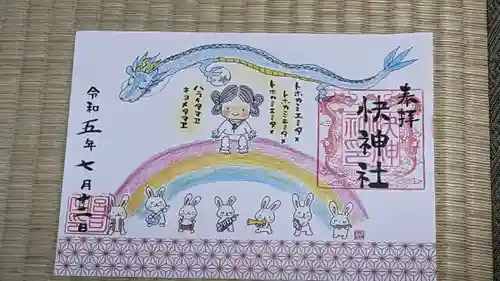 奉拝
快神社
トホカミエミタメ
トホカミエミタメ
トホカミエミタメ
ハラヘタマヒ
キヨメタマフ
令和五年七月十一日